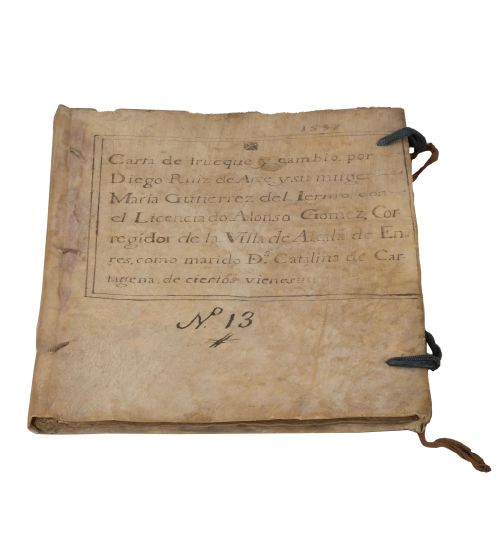 Carta de trueque y cambio, por
Diego Ruiz de Arze y su muger
Maria Gutierrez del Iermo, con
el Licenciado Alonso Gomez, Cor
regidor de la Villa de Alcala de En.
res, como marido D.ª Catalina de Car-
tagena, de ciertos vienes
N.º 13